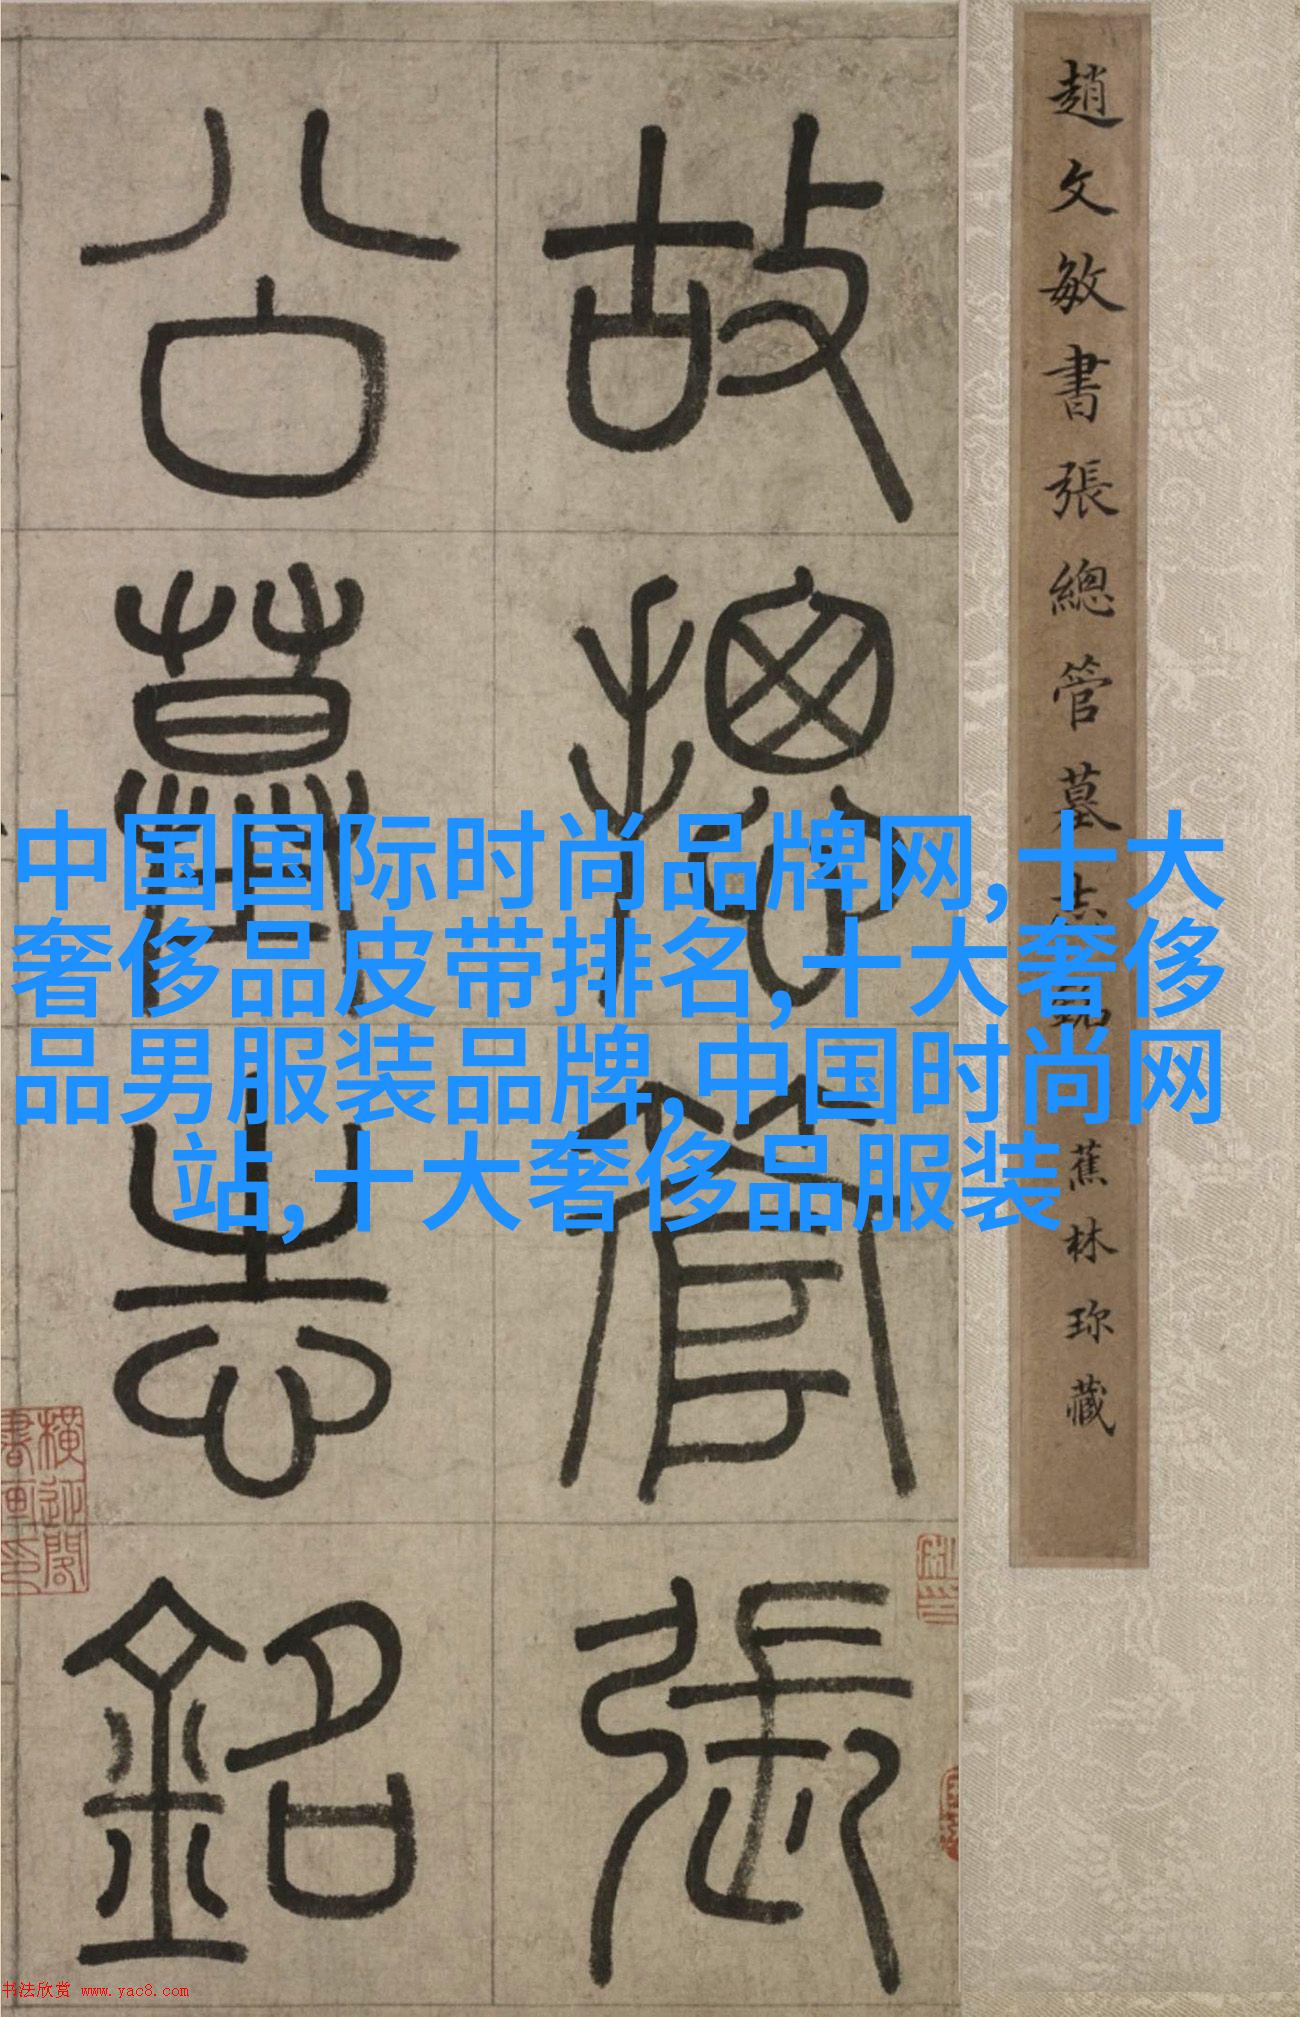 趙文敏書張總管墓志銘 蕉林珍藏
故總管張
公墓志銘
中国国际时尚品牌网,十大
奢侈品皮带排名,十大奢侈
品男服装品牌,中国时尚网
站,十大奢侈品服装
书法欣赏 www.yac8.com